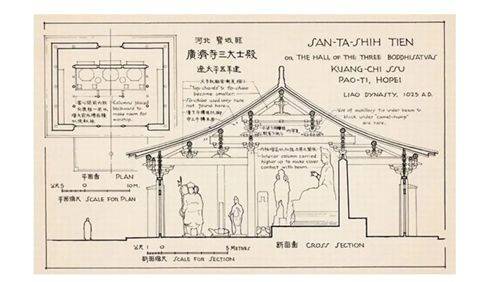 河北 寶坻縣
廣濟寺三大士殿
遼太平五年建
SAN-TA-SHIH TIEN
OR THE HALL OF THE THREE BODHISATVAS
KUANG-CHI SSU
PAO-TI, HOPEI
LIAO DYNASTY, 1025 A.D.
"Top-chords" to fu-chiao
become smaller.
not found here.
Use of auxiliary tie under beam &
block under "camel-hump"
are rare.
Columns placed
backward to
make room for
worship.
Interior column carried
higher up to make closer
contact with beam.
平面圖 PLAN
公尺 5 0 10 M.
平面縮尺 SCALE FOR PLAN
公尺 1 0 5 METRES
斷面縮尺 SCALE FOR SECTION
斷面圖 CROSS SECTION